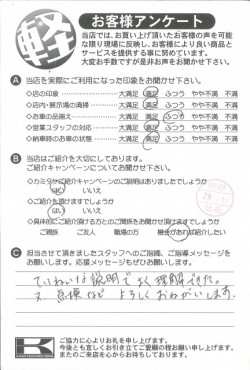 軽
お客様アンケート
当店では、お買い上げ頂いたお客様の声を可能
な限り現場に反映し、お客様により良い商品と
サービスを提供する事に努めています。
大変お手数ですが是非お声をお聞かせ下さい。
A 当店を実際にご利用になった印象をお聞かせ下さい。
◇店の印象 大満足 満足 ふつう やや不満 不満
◇店内・展示場の清掃 大満足 満足 ふつう やや不満 不満
◇お車の品揃え 大満足 満足 ふつう やや不満 不満
◇営業スタッフの対応 大満足 満足 ふつう やや不満 不満
◇納車時のお車の状態 大満足 満足 ふつう やや不満 不満
B 当店はご紹介を大切にしております。
ご紹介キャンペーンについてお聞かせ下さい。
ご紹介キャンペーンのご説明はありましたでしょうか
はい いいえ
◇ご紹介を頂けますでしょうか
はい いいえ
◇具体的にご紹介頂ける方とのご関係をお聞かせ頂けますでしょうか
ご親族 ご友人 職場の方 機会があれば紹介したい
C 担当させて頂きましたスタッフへのご指摘、ご指導メッセージを
お願いします。応援メッセージもぜひお願いします。
ていねいな説明でよく理解できた。
又、点検など よろしくおねがいします。
K
ご協力に心よりお礼を申し上げます。
今後とも宜しくお引き立てご愛顧の程お願い申し上げます。
またのご来店を心からお待ちしております。